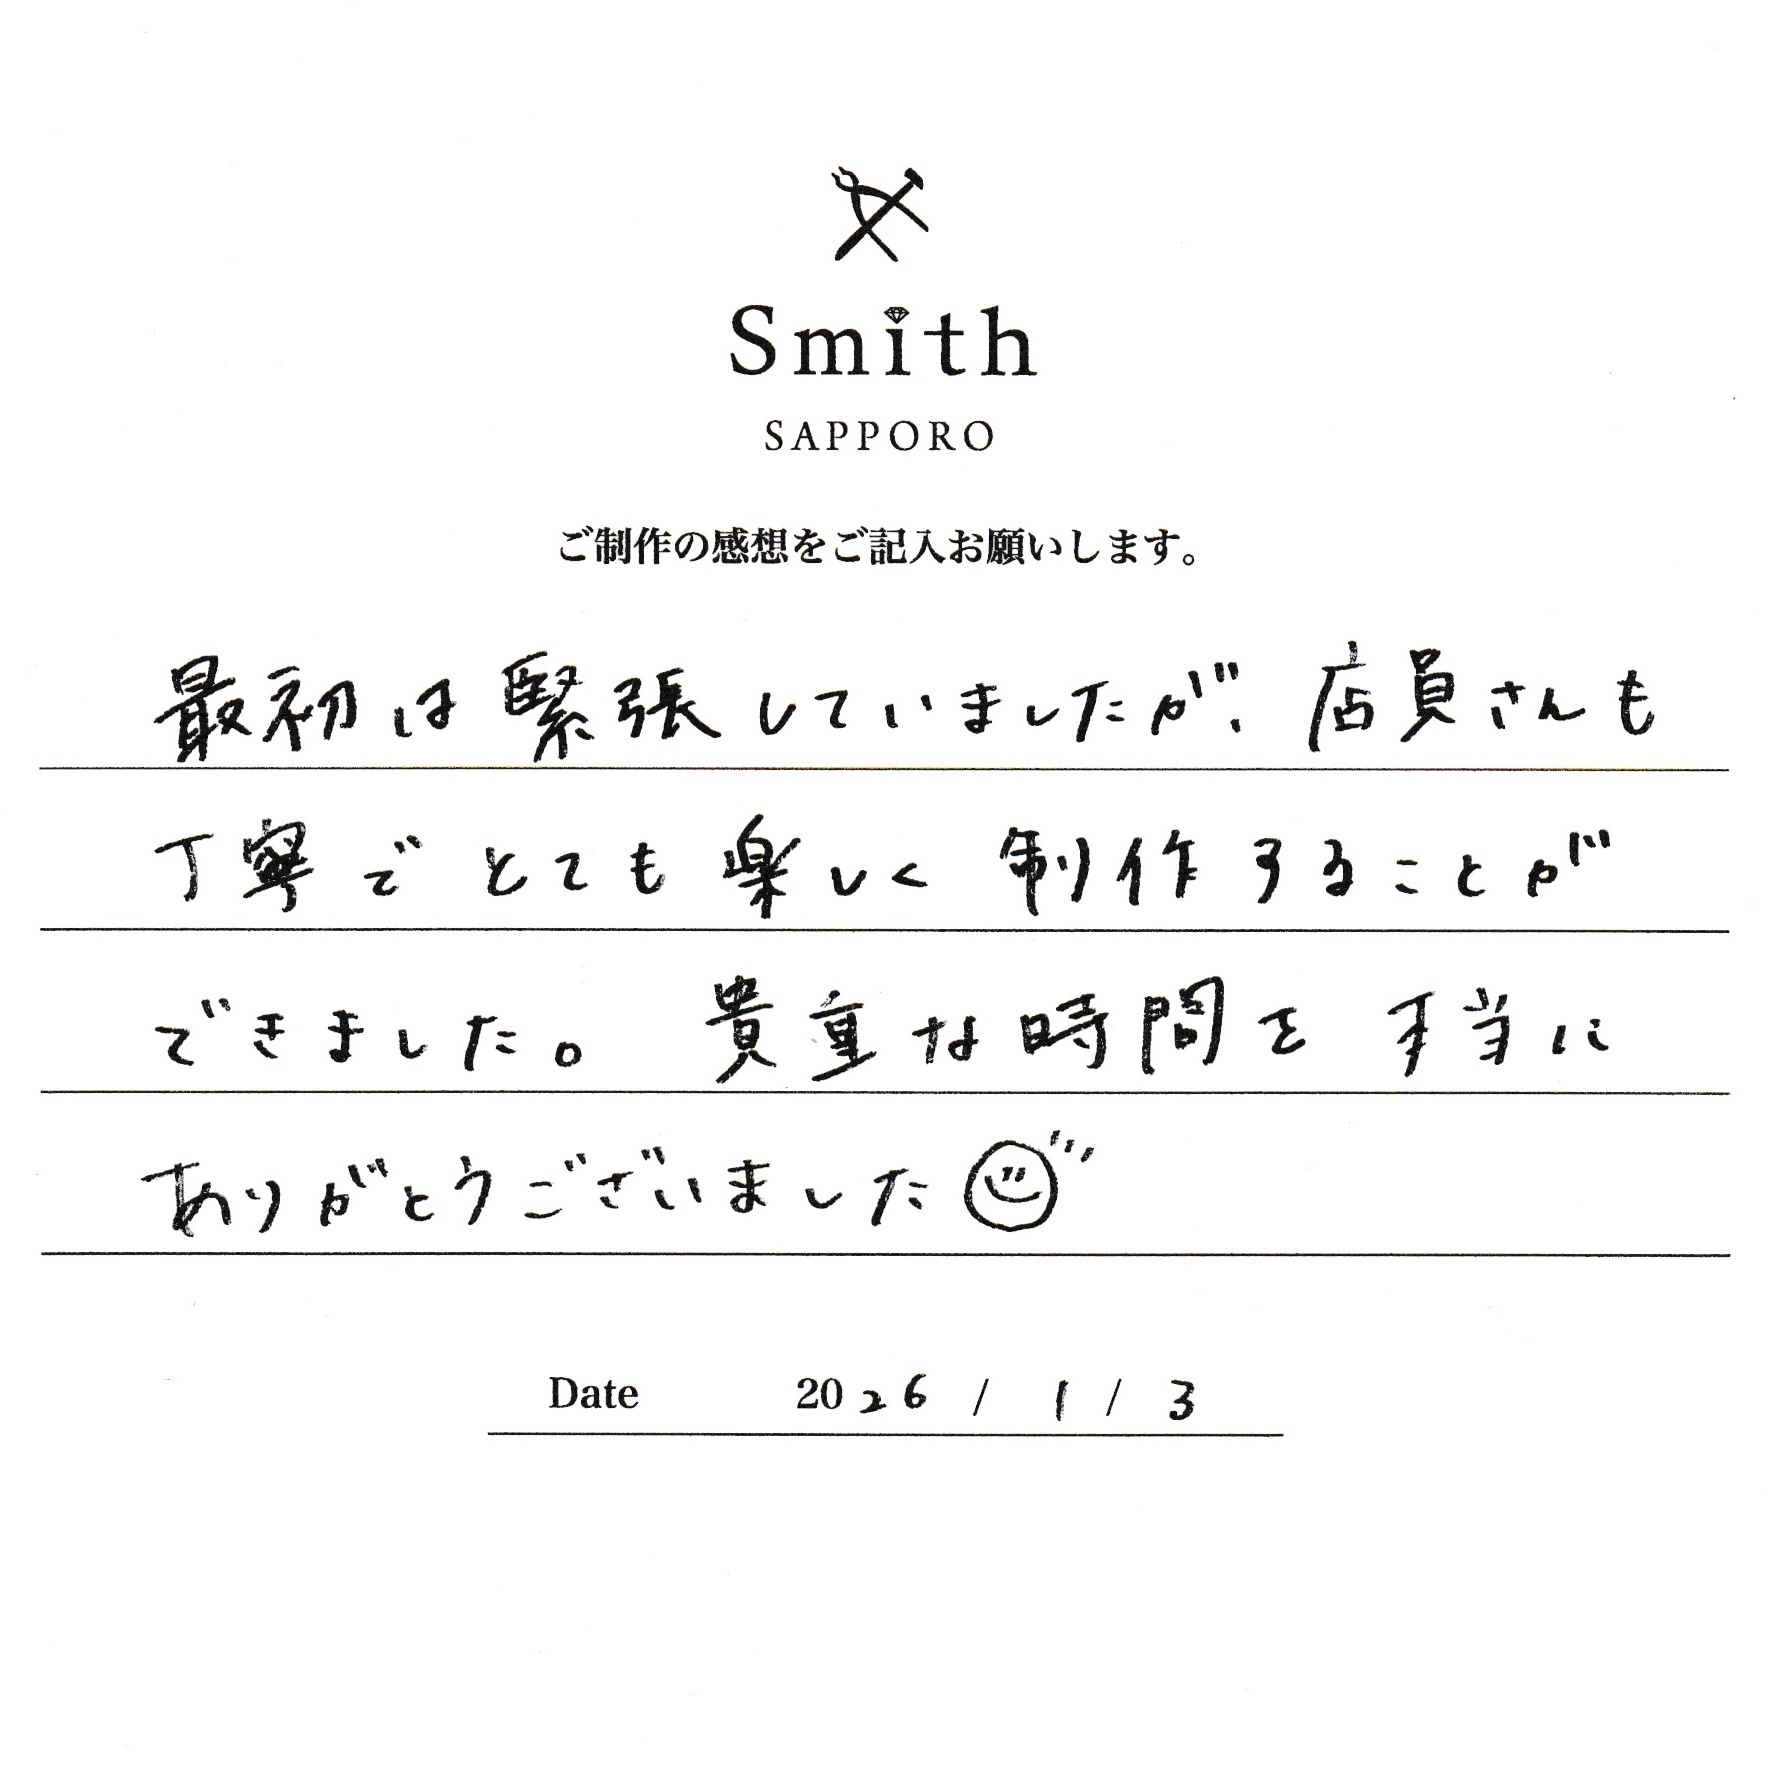 Smith
SAPPORO
ご制作の感想をご記入お願いします。
最初は緊張していましたが、店員さんも
丁寧でとても楽しく制作することが
できました。貴重な時間を本当に
ありがとうございました
Date 2026 / 1 / 3